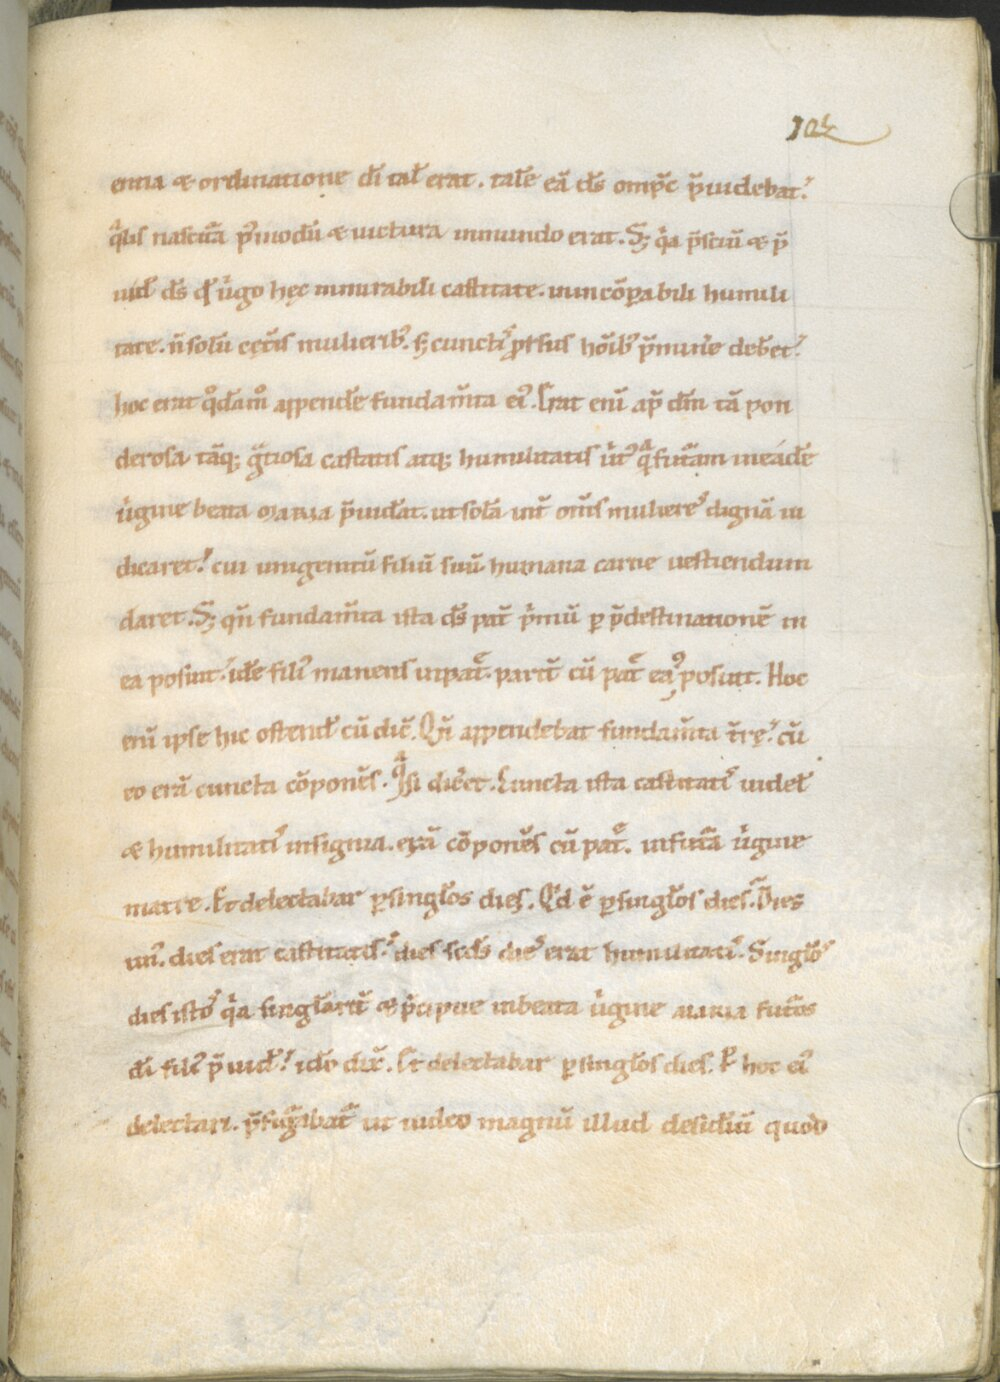 104
entia & ordinatione di tał erat. talē eā ds omps p̄uidebat.
qł̓is nascitā p̓modū & uictura in mundo erat. S; q̓a p̄sciū & p̄
uid̄ ds qđ uirgo hęc mirabili castitate. uincōparabili humili
tate. n̄ solū cęt̄is mulierib;. s; cunctis ꝓrsus hōib; p̄minēe debet.
hoc erat q̊dāmō appendēe fundam̄ta ei. Erat enī ap̄ dm̄ tā pon
derosa tāq; g̃tiosa castitatis atq; humilitatis uirt̓ q̄ futāam in eadē
uirgine beata Maria p̄uidāat. ut solā int̄ om̄s mulieres dignā iu
dicaret! cui unigenitū filiū suū humana carne uestiendum
daret. S; qn̄ fundam̄ta ista ds pat̄ p̓mū p p̄destinationē in
ea posuit. idē fili̓ manens in pat̄e. parit̄ cū pat̄e ea p̓posuit. Hoc
enī ipse hic ostend̄ cū dic̄. Qn̄ appendebat fundam̄ta t̄rę. cū
eo erā cuncta cōponēs. Q̓si dic̄et. Cuncta ista castitatis uidel̄
& humilitatis insignia. erā cōponēs cū pat̄e. in futāa uirgine
matre. Et delectabar p singłos dies. Q̓d ē p singłos dies. Dies
un̓. dies erat castitatis. dies scds dies erat humilitatis. Singłos
dies istos q̓a singłarit̄ & p̄cipue in beata uirgine Maria futāos
di fili̓ p̄uid̄! idō dic̄. Et delectabar p singłos dies. P hoc ei̓
delectari. p̄figābat̄ ut uideo magnū illud desidiū quod